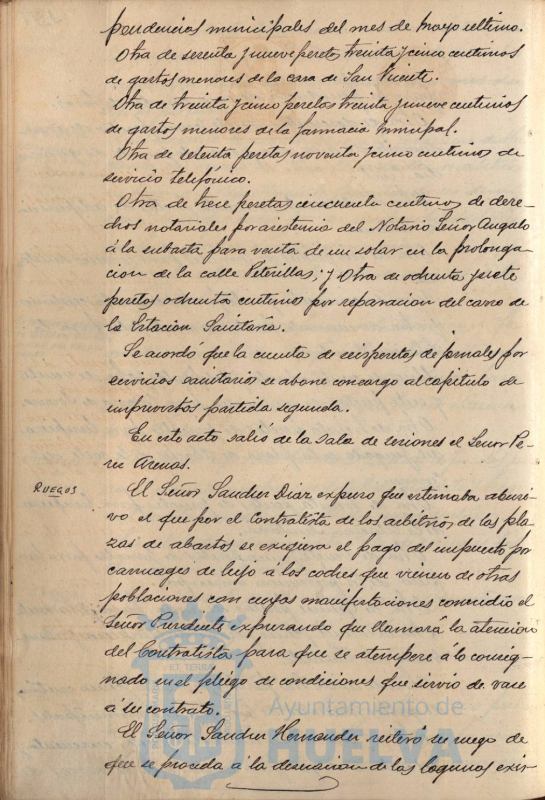 pendencias municipales del mes de Mayo ultimo.
Otra de setenta y nueve pesetas treinta y cinco centimos
de gastos menores de la casa de San Vicente.
Otra de treinta y cinco pesetas treinta y nueve centimos
de gastos menores de la farmacia Municipal.
Otra de setenta pesetas noventa y cinco centimos de
servicio telefónico.
Otra de trece pesetas cincuenta centimos de dere-
chos notariales por asistencia del Notario Señor Angulo
á la subasta para venta de un solar en la prolonga-
cion de la calle Peterillas; y Otra de ochenta y siete
pesetas ochenta centimos por reparacion del carro de
la Estacion Sanitaria.
Se acordó que la cuenta de seis pesetas de jornales por
servicios sanitarios se abone con cargo al capitulo de
imprevistos partida segunda.
En este acto salió de la sala de sesiones el Señor Pe-
rez Arenas.
RUEGOS
El Señor Sanchez Diaz expuso que estimaba abusi-
vo el que por el Contratista de los arbitrios de las pla-
zas de abastos se exigiera el pago del impuesto por
carruages de lujo á los coches que vienen de otras
poblaciones con cuyas manifestaciones coincidió el
Señor Presidente expresando que llamará la atencion
del Contratista para que se atempere á lo consig-
nado en el pliego de condiciones que sirvio de vase
á su contrato.
El Señor Sanchez Hernandez reiteró su ruego de
que se proceda á la desecacion de las lagunas exis-
Ayuntamiento de
HUELVA